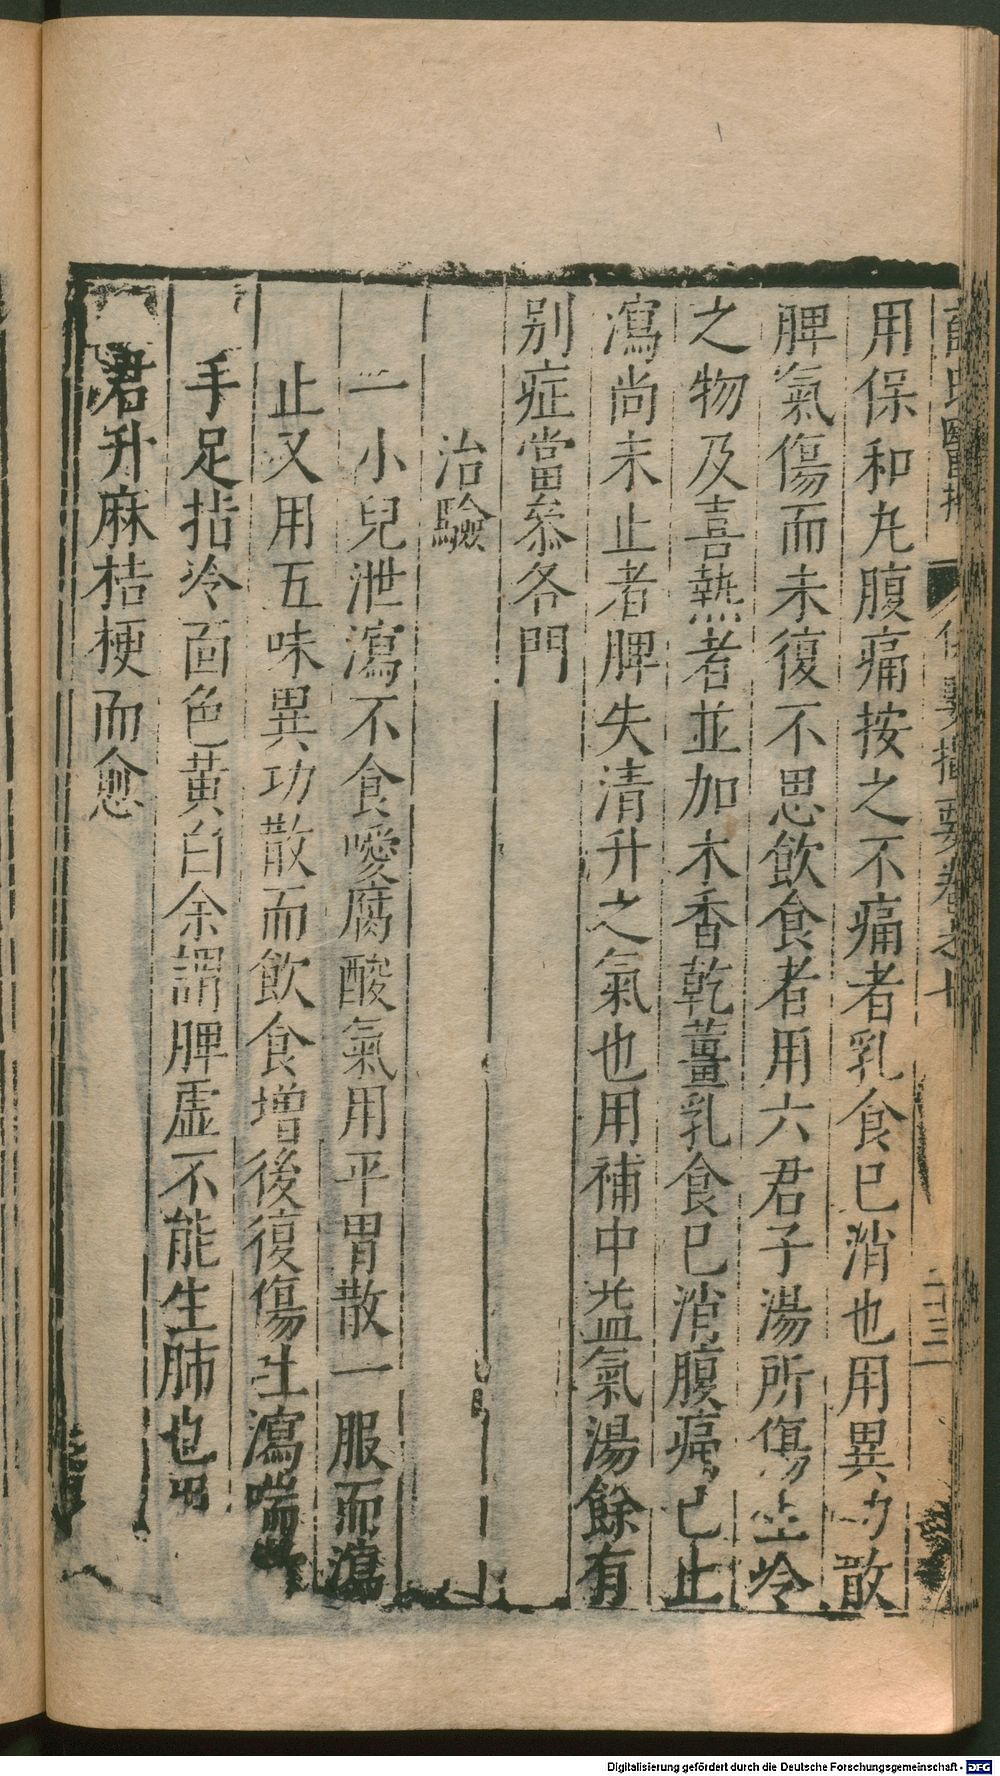 薛氏醫按 保嬰撮要卷之七 二十三
用保和丸腹痛按之不痛者乳食已消也用異功散
脾氣傷而未復不思飲食者用六君子湯所傷生冷
之物及喜熱者並加木香乾薑乳食已消腹痛已止
瀉尚未止者脾失清升之氣也用補中益氣湯餘有
别症當叅各門
治驗
一小兒泄瀉不食噯腐酸氣用平胃散一服而瀉
止又用五味異功散而飲食增後復傷生瀉喘
手足指冷面色黃白余謂脾虛不能生肺也用
君升麻桔梗而愈
Digitalisierung gefördert durch die Deutsche Forschungsgemeinschaft - DFG